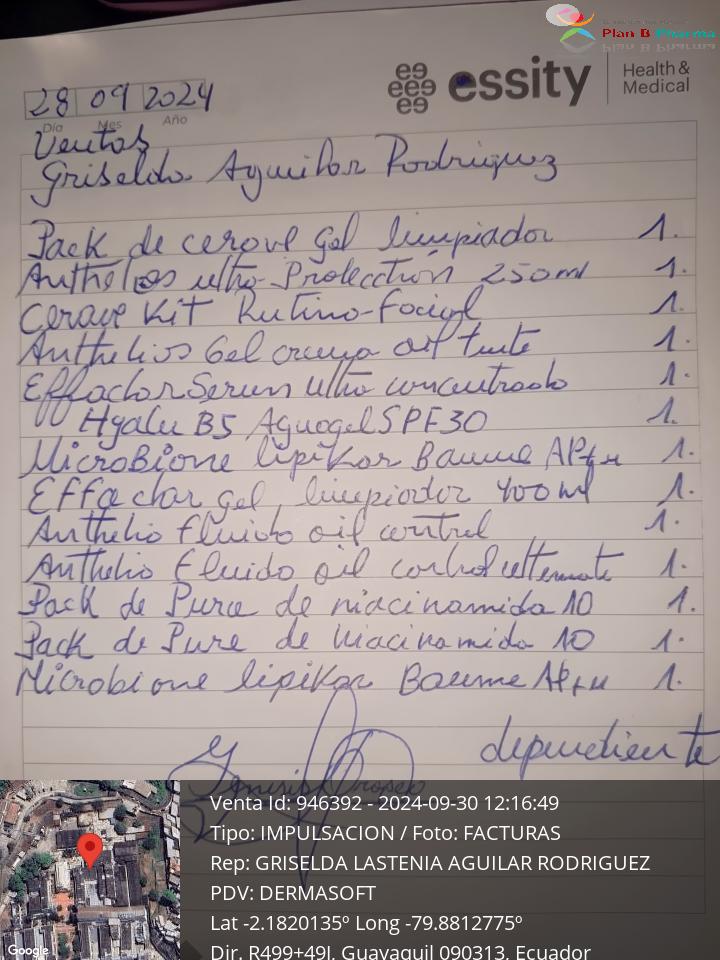 Plan B Pharma
essity
Health & Medical
28 09 2024
Día Mes Año
Ventas
Griselda Aguilar Rodriguez
Pack de cerave Gel limpiador 1.
Anthelios ultra-Protección 250ml 1.
Cerave Kit Rutino-Facial 1.
Anthelios Gel crema oil 1.
Effaclar Serum ultra concentrado 1.
Hyalu B5 Aquagel SPF30 1.
MicroBione lipikar Baume AP+M 1.
Effaclar gel limpiador 400ml 1.
Anthelio fluido oil control 1.
Anthelio fluido oil control 1.
Pack de Pure de niacinamida 10 1.
Pack de Pure de niacinamida 10 1.
Microbione lipikar Baume AP+M 1.
dependiente
Venta Id: 946392 - 2024-09-30 12:16:49
Tipo: IMPULSACION / Foto: FACTURAS
Rep: GRISELDA LASTENIA AGUILAR RODRIGUEZ
PDV: DERMASOFT
Lat -2.1820135º Long -79.8812775º
Dir. R499+49J, Guayaquil 090313, Ecuador
Google